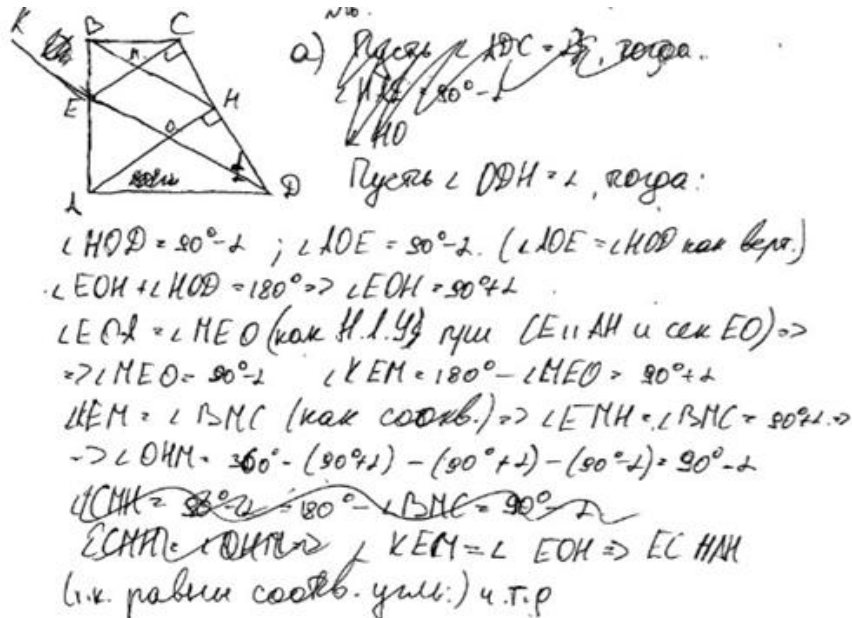 №16.
B C
K
E M H
O
A D
а) Пусть ∠ADC = тогда
∠HAE = 90° - α
∠HO
Пусть ∠ODH = α, тогда:
∠HOD = 90° - α ; ∠AOE = 90° - α. (∠AOE = ∠HOD как верт.)
∠EOH + ∠HOD = 180° => ∠EOH = 90° + α
∠EOA = ∠MEO (как Н.Л.У) при CE || AH и сек EO) =>
=> ∠MEO = 90° - α ∠KEM = 180° - ∠MEO = 90° + α
∠KEM = ∠BMC (как соотв.) => ∠EMH = ∠BMC = 90° + α =>
=> ∠OHM = 360° - (90° + α) - (90° + α) - (90° - α) = 90° - α
∠CMH = 90° - α = 180° - ∠BMC = 90° - α
∠KEM = ∠EOH => EC || AH
(т.к. равны соотв. углы:) ч.т.д